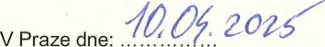 V Praze dne: 10.04.2025